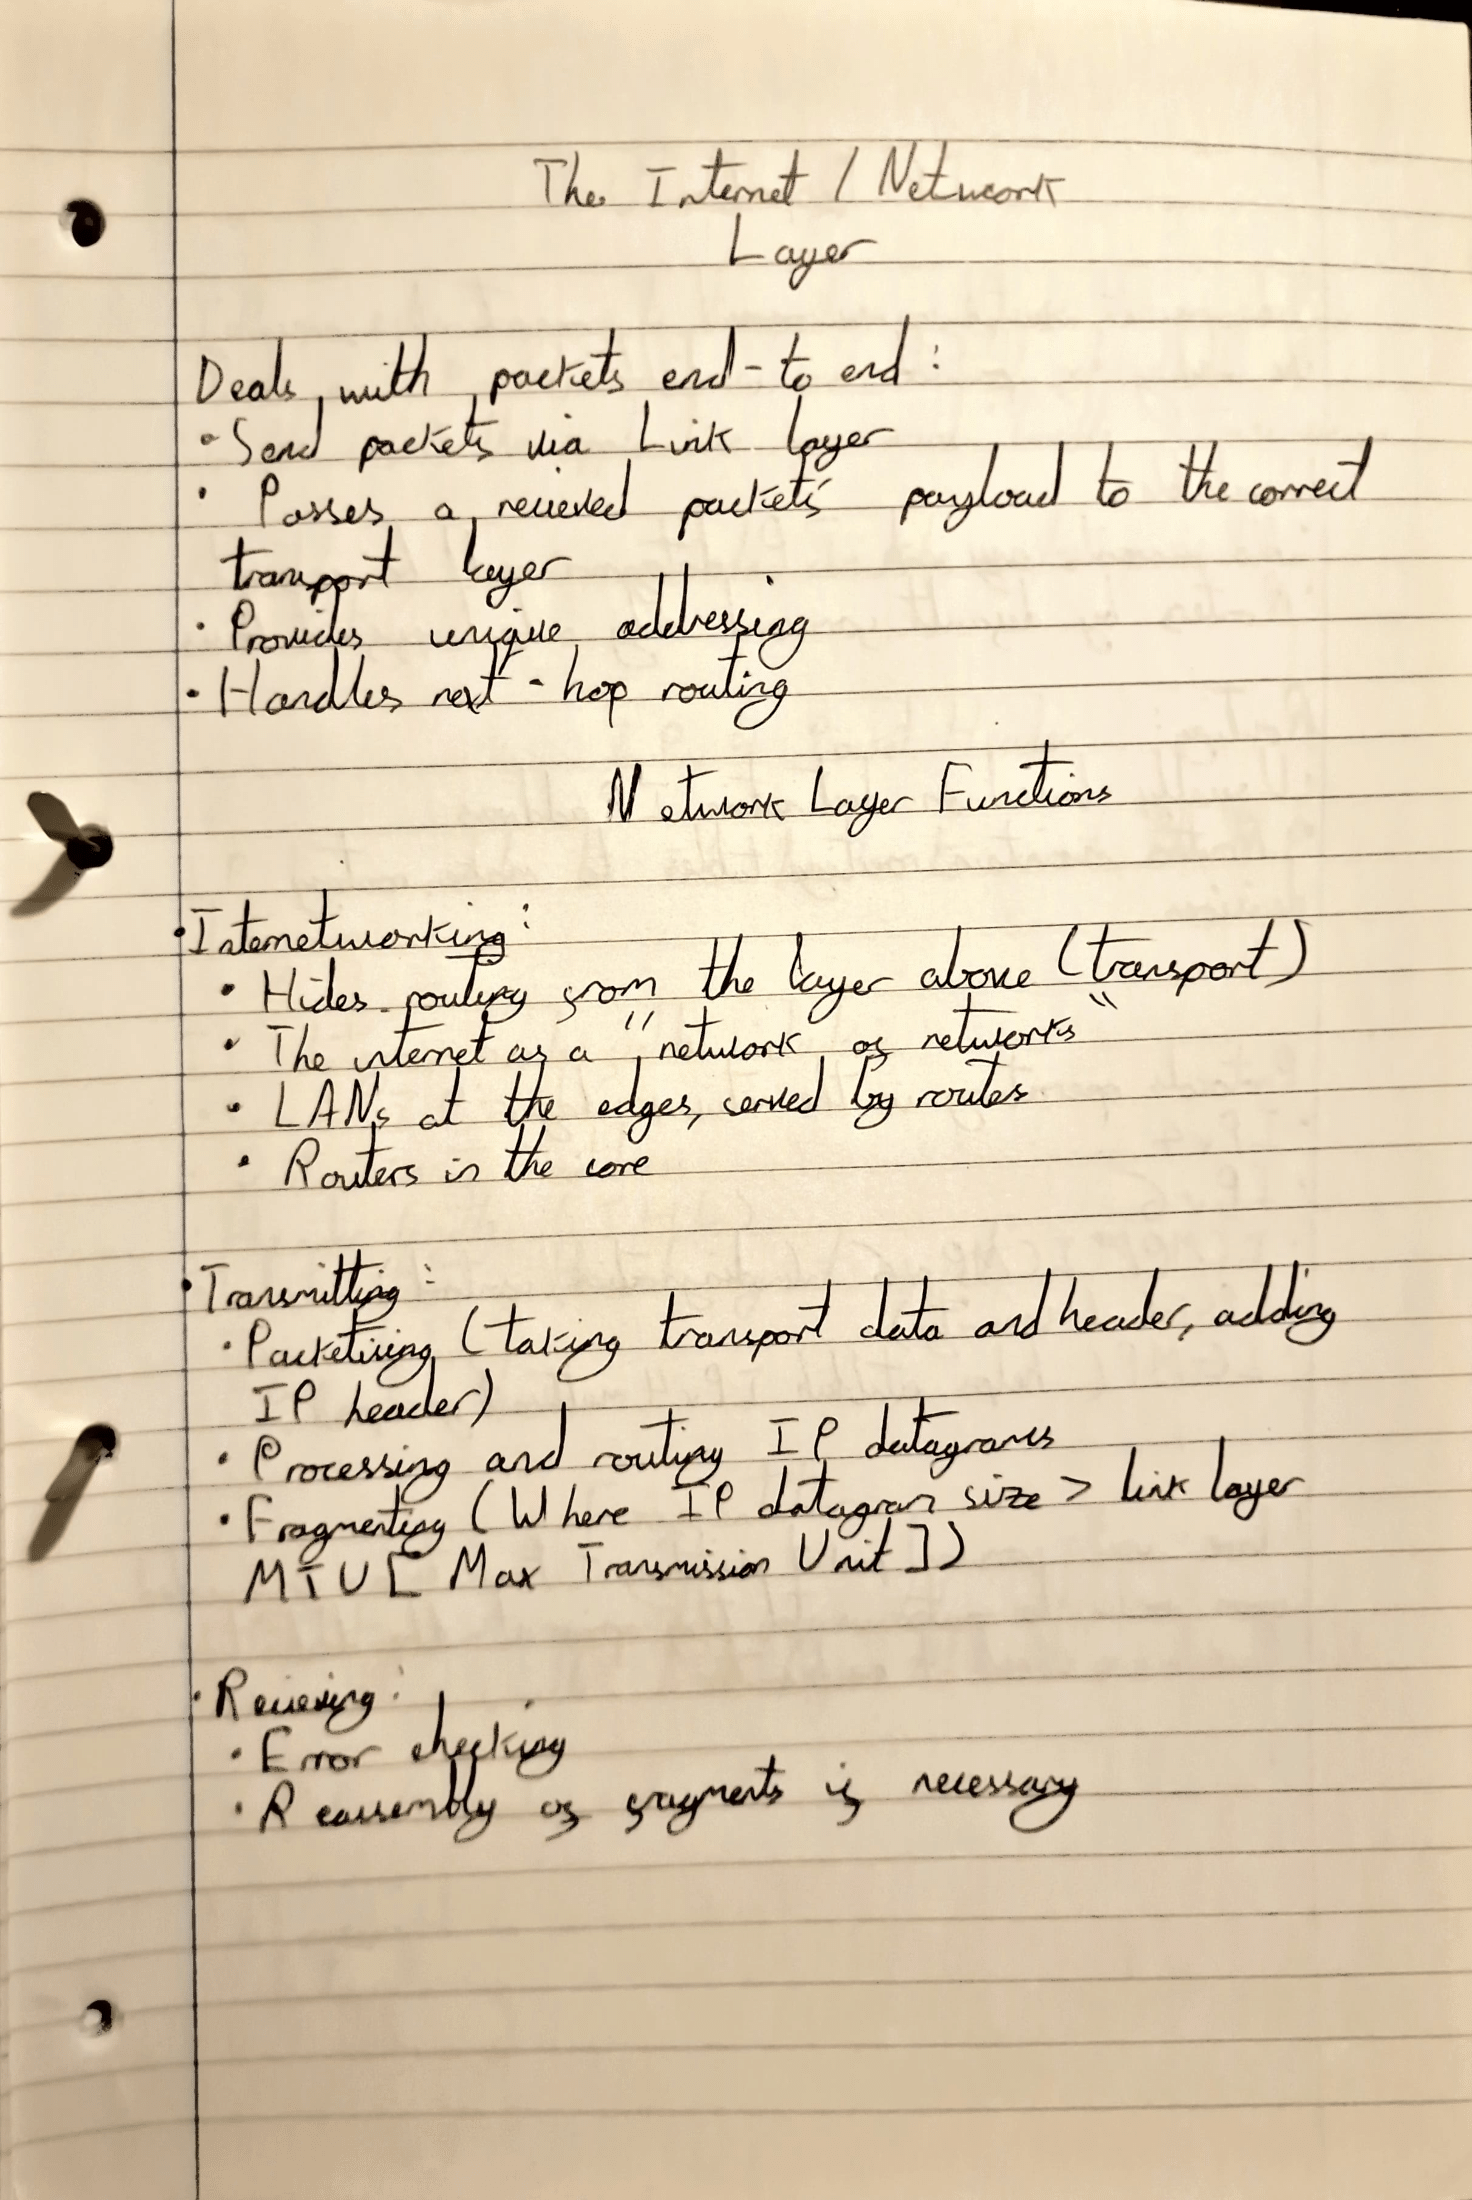 The Internet / Network
Layer
Deals with packets end-to end:
• Send packets via Link layer
• Passes a recieved packets' payload to the correct
transport layer
• Provides unique addressing
• Handles next-hop routing
Network Layer Functions
• Internetworking:
• Hides routing from the layer above (transport)
• The internet as a "network of networks"
• LANs at the edges, served by routes
• Routers in the core
• Transmitting:
• Packetising (taking transport data and header, adding
IP header)
• Processing and routing IP datagrams
• Fragmenting (Where IP datagram size > link layer
MTU [Max Transmission Unit])
• Recieving:
• Error checking
• Reassembly of fragments if necessary